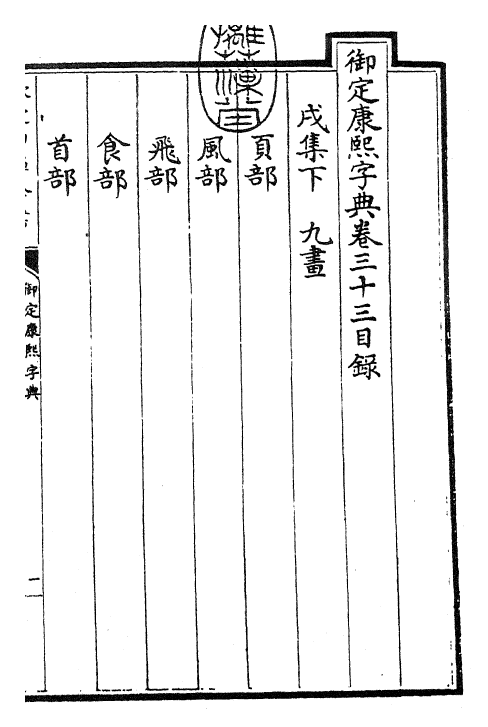 御定康熙字典卷三十三目錄
戌集下　九畫
頁部
風部
飛部
食部
首部
御定康熙字典
二